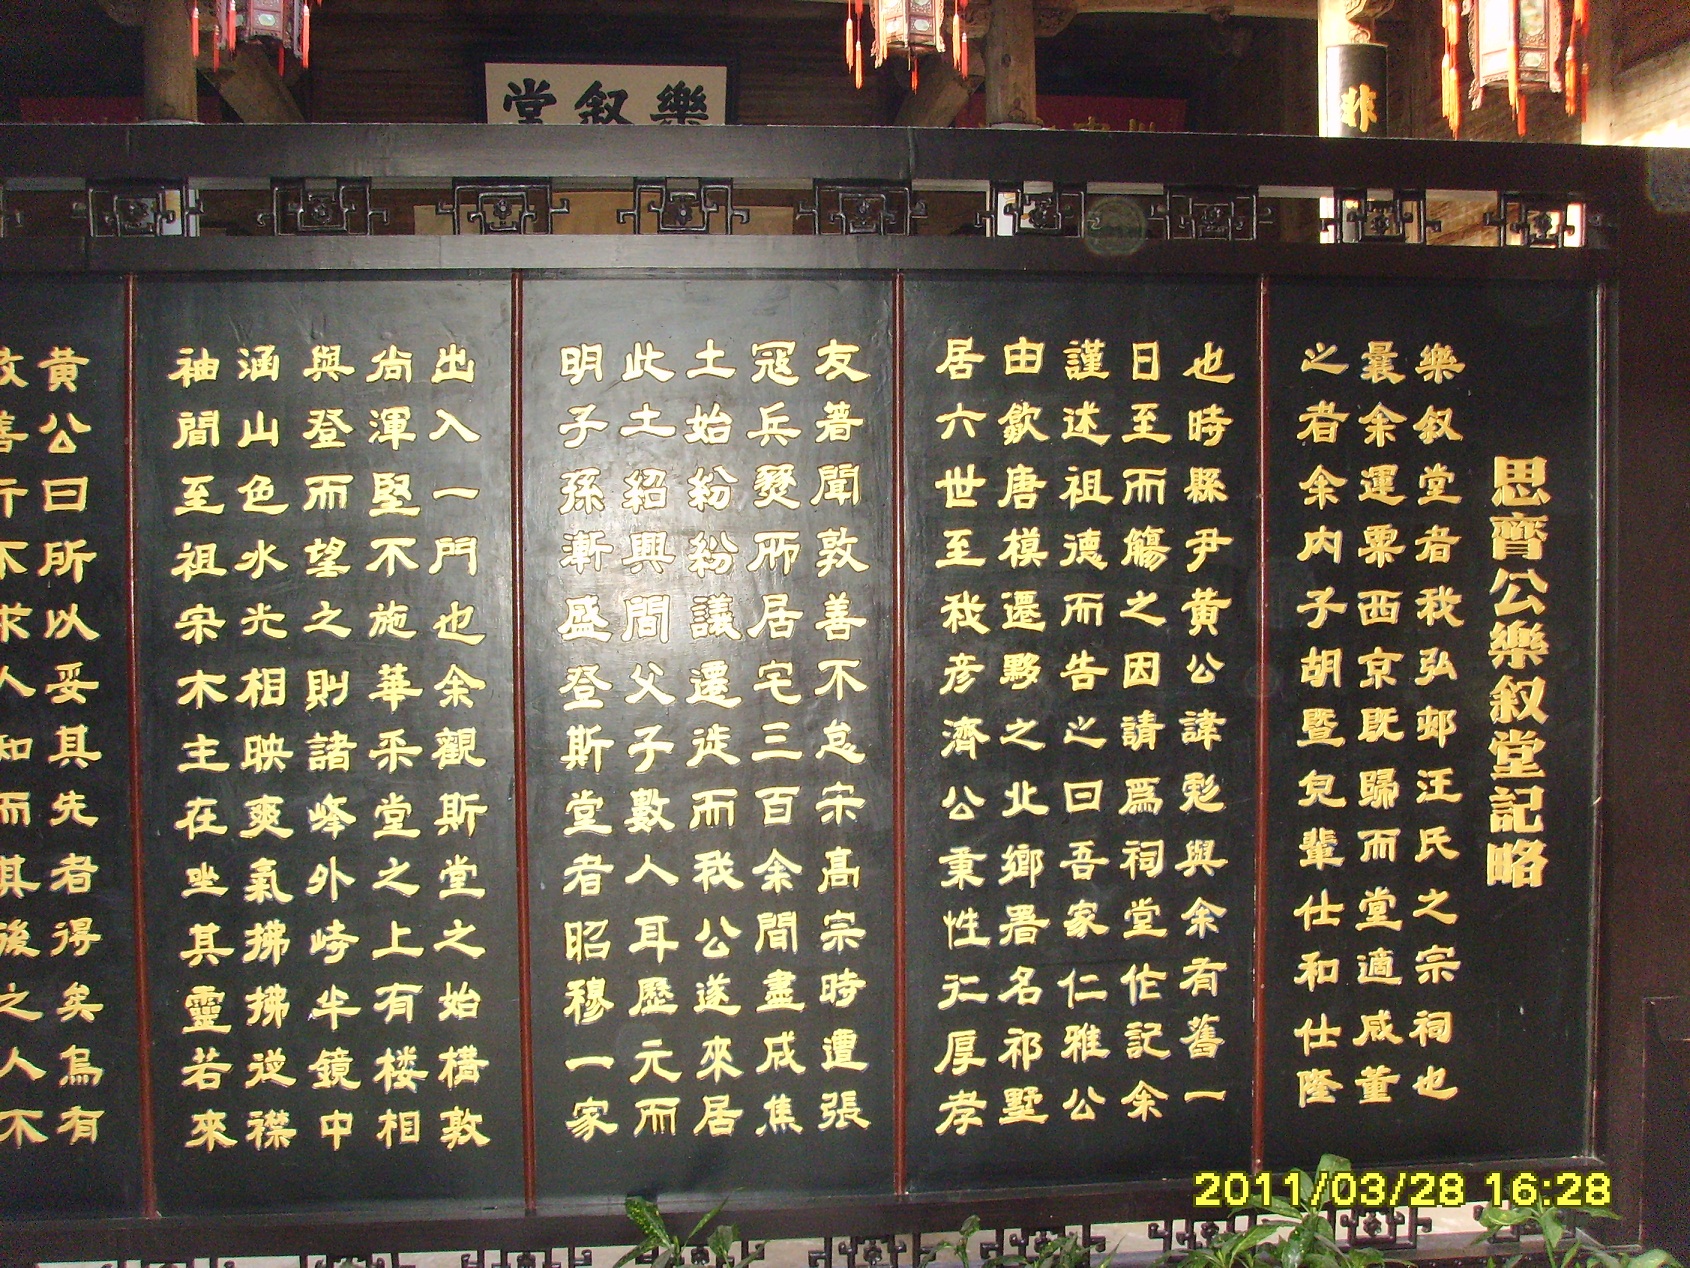 樂叙堂
思齊公樂叙堂記略
樂叙堂者我弘邨汪氏之宗祠也
曩余運粟西京既歸而堂適咸董
之者余内子胡暨兒輩仕和仕隆
也時縣尹黄公諱彪與余有舊一
日至而觴之因請爲祠堂作記余
謹述祖德而告之曰吾家仁雅公
由歙唐模遷黟之北鄉署名祁墅
居六世至我彦濟公秉性仁厚孝
友著聞敦善不怠宋高宗時遭張
冦兵燹所居宅三百余間盡成焦
土始紛紛議還徙而我公遂來居
此土紹興間父子數人耳歷元而
明子孫漸盛登斯堂者昭穆一家
出入一門也余觀斯堂之始搆敦
尚渾堅不施華采堂之上有楼相
與登而望之則諸峰外峙半鏡中
涵山色水光相映爽氣拂拂逆襟
袖間至祖宗木主在坐其靈若來
黄公曰所以妥其先者得矣烏有
善行不求人知而其後之人不
2011/03/28 16:28